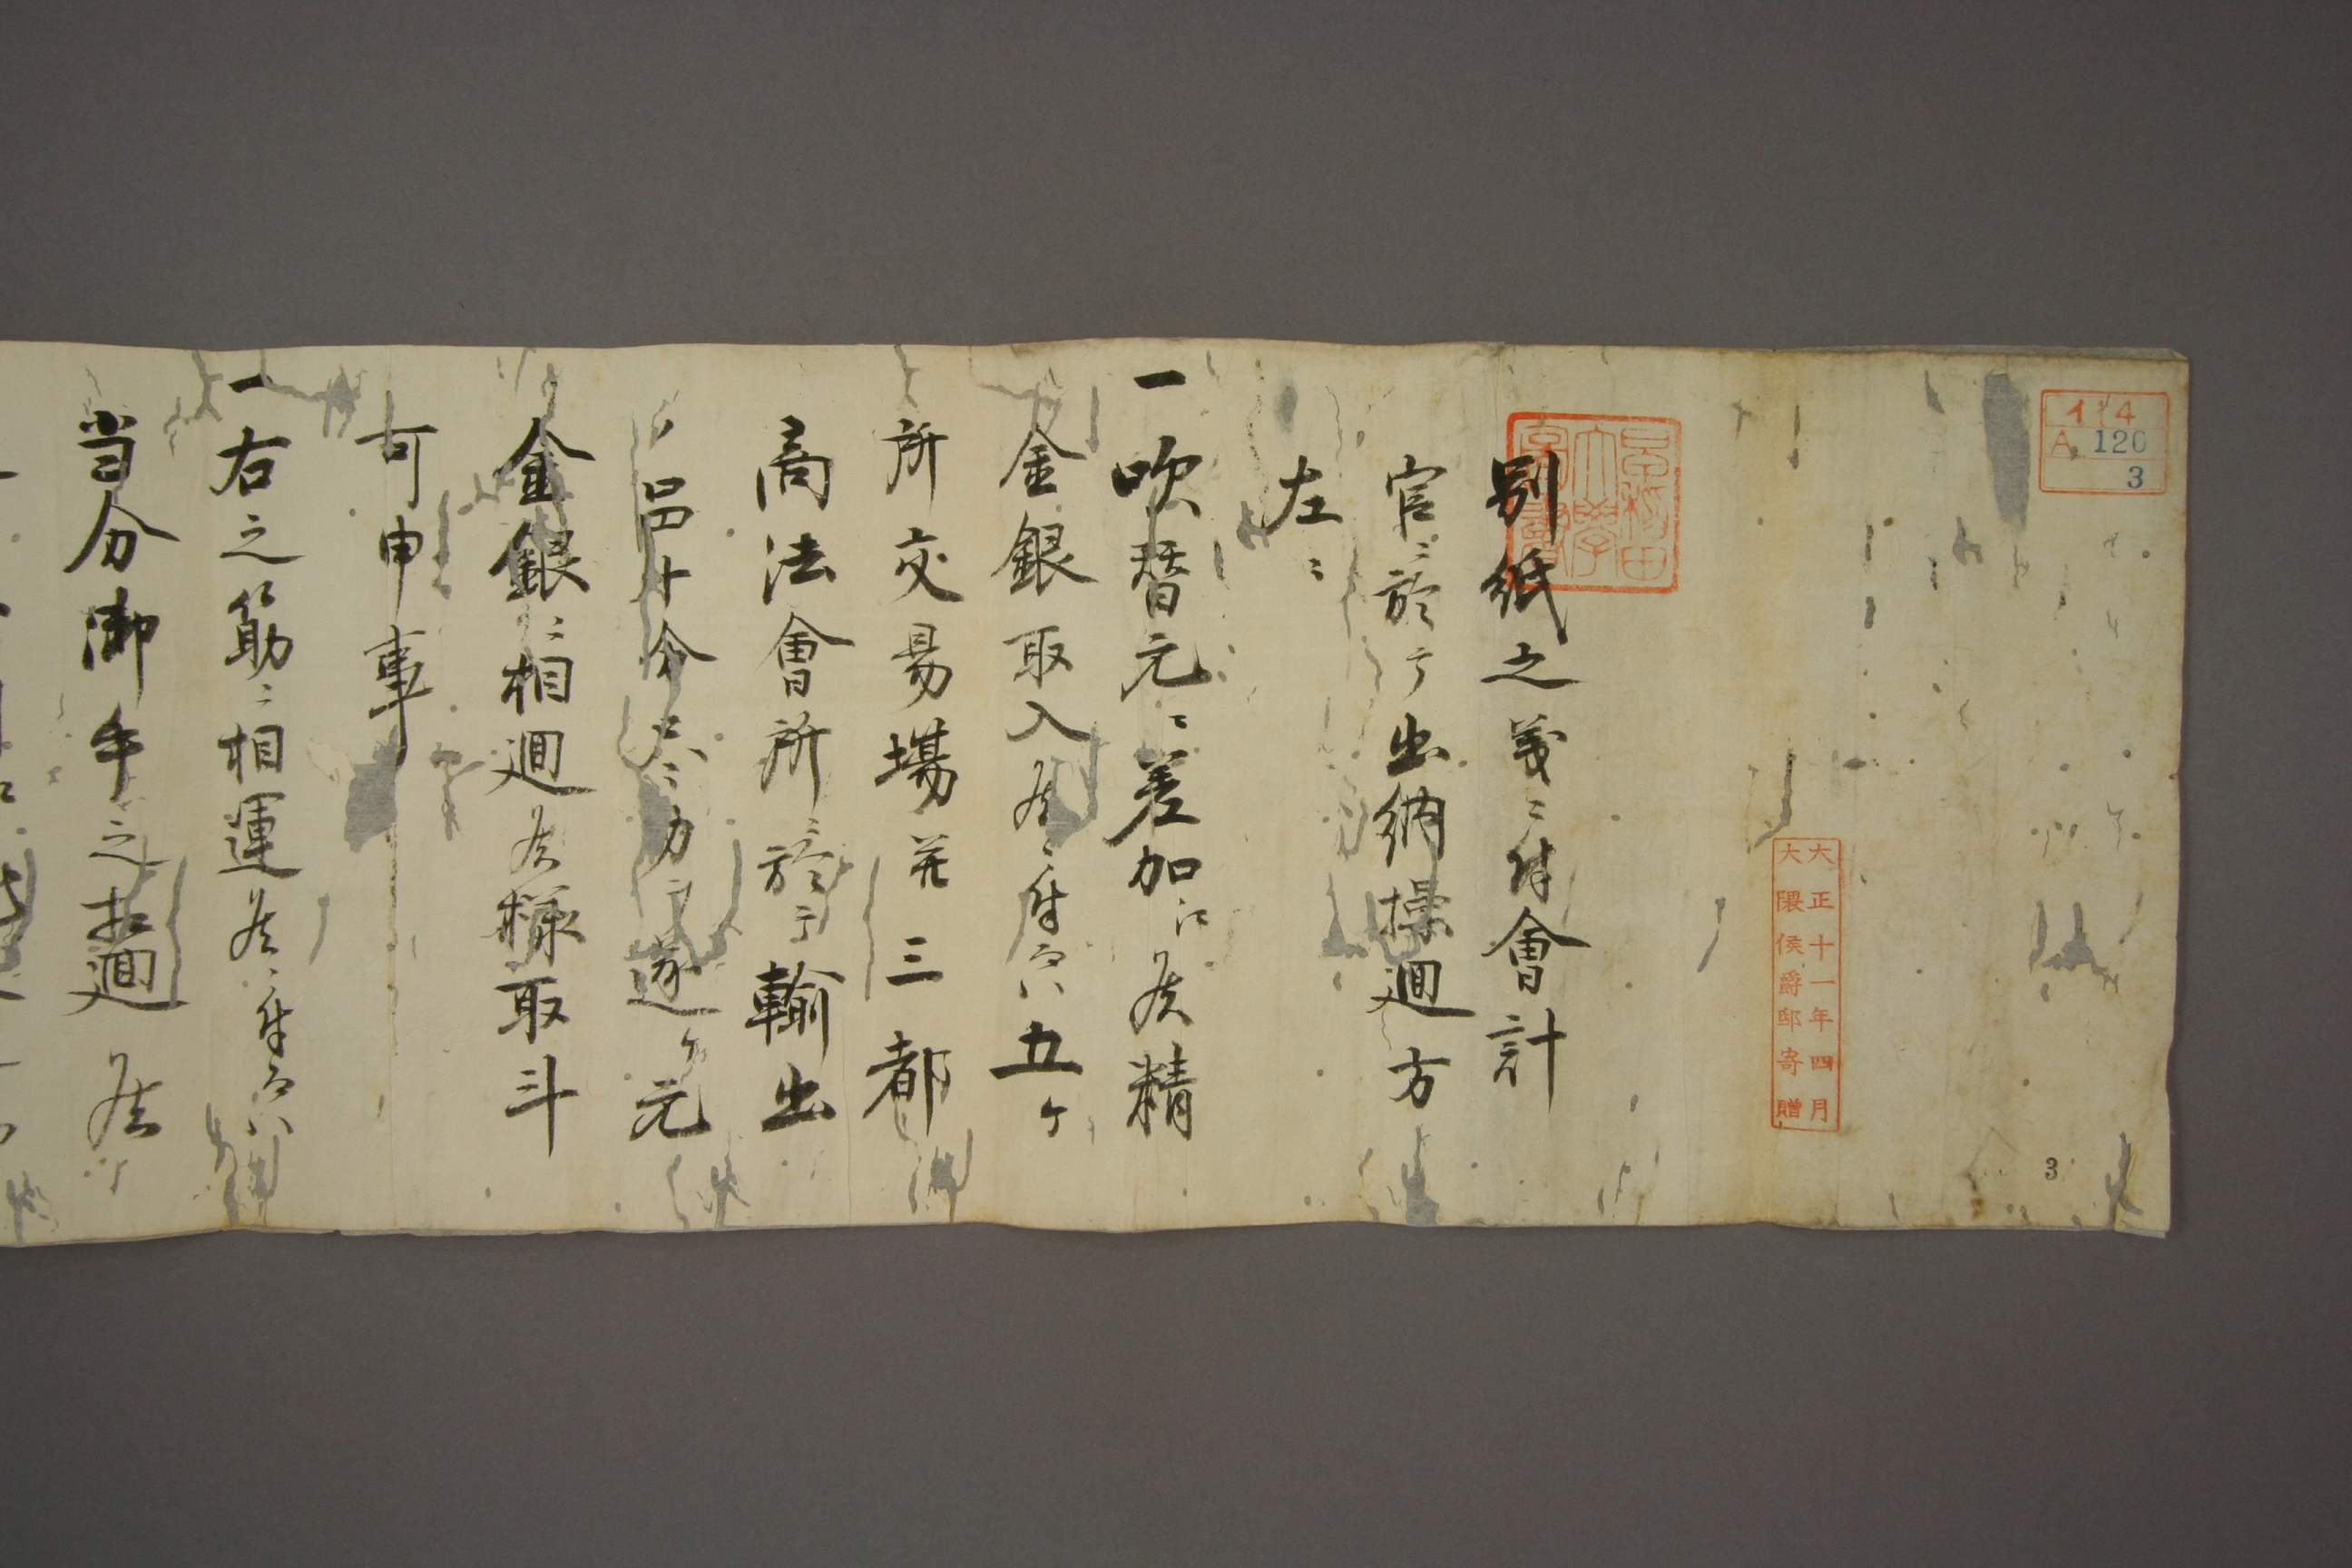 イ14
A 120
3
大正十一年四月
大隈侯爵邸寄贈
3
早稲田
大学
図書
別紙之義ニ付會計
官ニ於テ出納操廻方
左ニ
一吹替元ニ差加江候精
金銀取入候ニ付而ハ五ケ
所交易場并三都
商法會所ニ於テ輸出
品十分尽力を遂ケ元
金銀ニ相廻候様取斗
可申事
一右之筋ニ相運候ニ付而ハ
当分御手之摺廻候